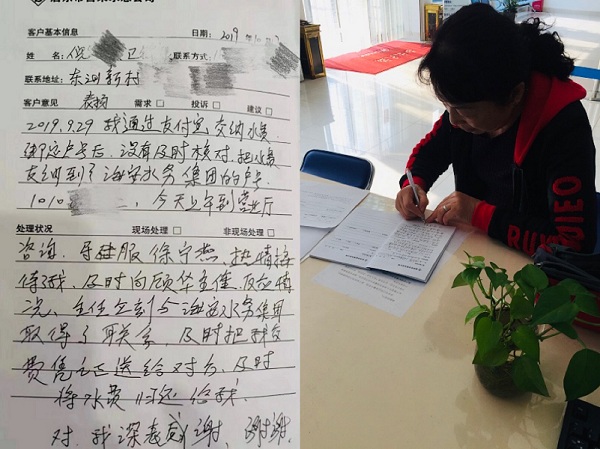 客户基本信息 日期: 2019
姓名: 倪 卫 联系方式:
联系地址: 东洲新村
客户意见 表扬 需求 □ 投诉 □ 建议 □
2019.9.29 我通过支付宝交纳水费
绑定户号后,没有及时核对,把水费
交纳到了海安水务集团的户号
1010 ,今天上午到营业厅
处理状况 现场处理 □ 非现场处理 □
咨询,导硅服徐宁燕,热情接
待我,及时向顾华主任反应情
况,主任立刻与海安水务集团
取得了联系,及时把我交
费凭证送给对方,及时
将水费归还给我
对 我深表感谢、谢谢.
RU DIEO